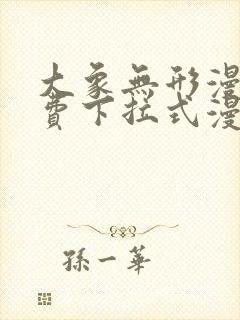 大象無形漫
費下拉式漫
孫一華